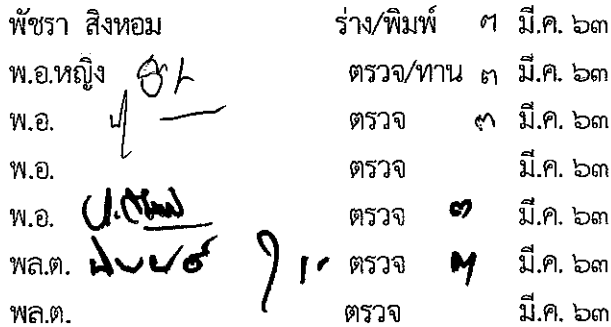 พัชรา สิงหอม ร่าง/พิมพ์ ๓ มี.ค. ๖๓
พ.อ.หญิง ตรวจ/ทาน ๓ มี.ค. ๖๓
พ.อ. ตรวจ ๓ มี.ค. ๖๓
พ.อ. ตรวจ มี.ค. ๖๓
พ.อ. ตรวจ ๓ มี.ค. ๖๓
พล.ต. ตรวจ มี.ค. ๖๓
พล.ต. ตรวจ มี.ค. ๖๓